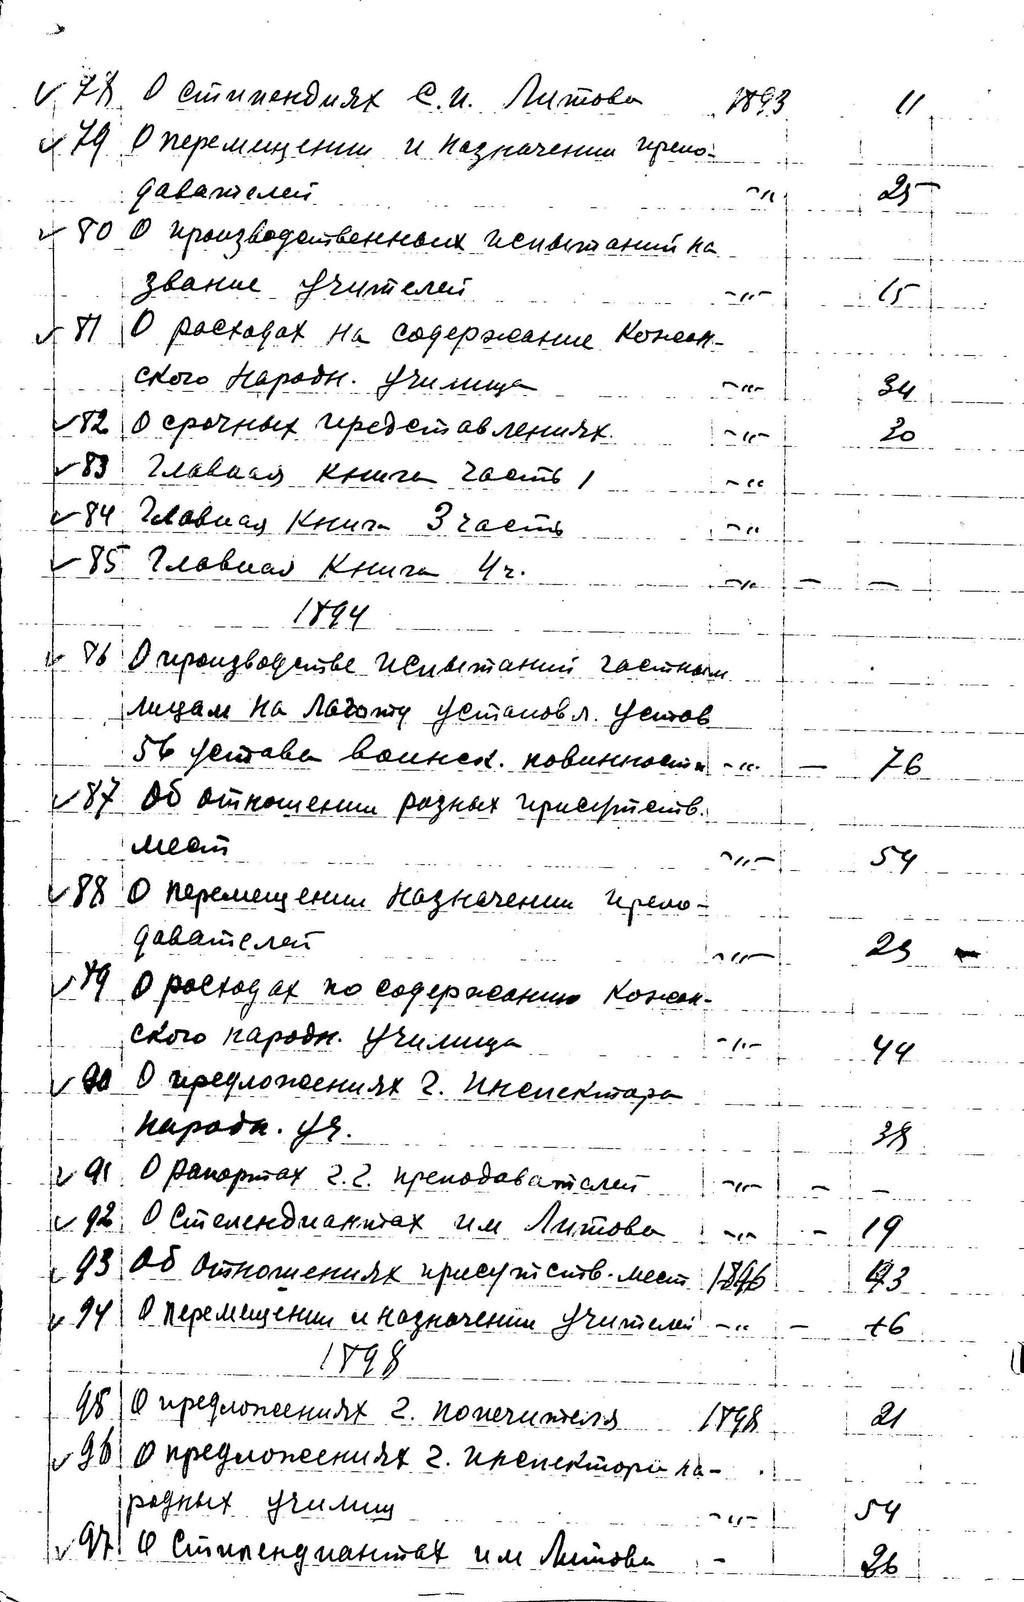 ✓ 78 О стипендиях С.И. Литова 1893 11
✓ 79 О перемещении и назначении препо-
давателей -"- 25
✓ 80 О производственных испытаний на
звание учителей -"- 15
✓ 81 О расходах на содержание Кожан-
ского Народн. училища -"- 34
✓ 82 О срочных представлениях. -"- 30
✓ 83 Главная книга часть 1 -"-
✓ 84 Главная Книга 3 часть -"-
✓ 85 Главная Книга 4 ч. -"- – –
1894
✓ 86 О производстве испытаний частным
лицам на льготу установл. устав
56 устава воинск. повинности -"- – 76
✓ 87 Об отношении разных присутств.
мест -"- 54
✓ 88 О перемещении назначении препо-
давателей -"- 23
✓ 89 О расходах по содержанию Кожан-
ского народн. училища -"- 44
✓ 90 О предложениях г. Инспектора
народн. уч. 38
✓ 91 О рапортах г.г. преподавателей -"- – –
✓ 92 О Стипендиантах им Литова -"- – 19
✓ 93 Об отношениях присутств. мест 1896 93
✓ 94 О перемещении и назначении учителей -"- – 16
1898
98 О предложениях г. попечителя 1898 21
✓ 96 О предложениях г. инспектора на-
родных училищ -"- 54
✓ 97 О Стипендиантах им Литова - 26